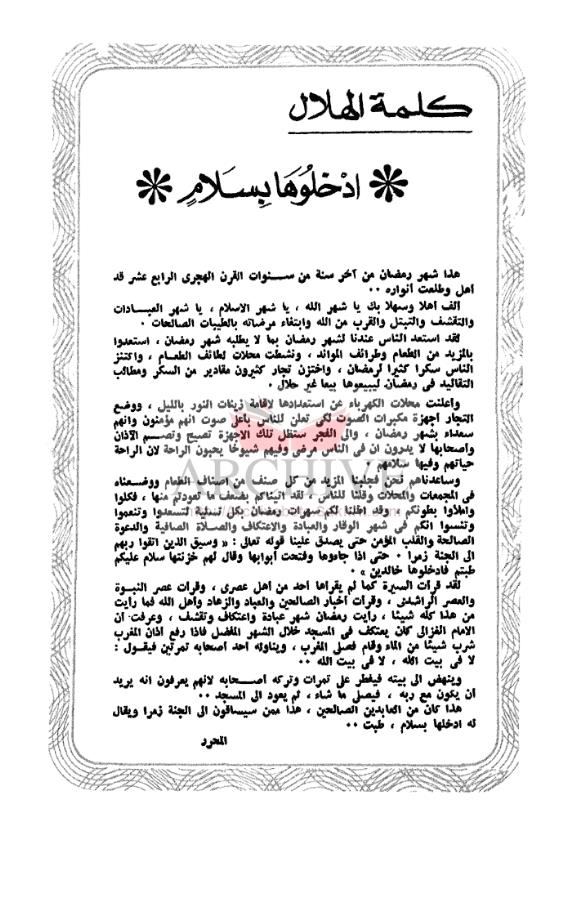 كلمة الهلال
ادْخلُوهَا بِسَلَامٍ
هذا شهر رمضان من آخر سنة من سنوات القرن الهجرى الرابع عشر قد
أهل وطلعت أنواره ٠٠
ألف أهلا وسهلا بك يا شهر الله ، يا شهر الاسلام ، يا شهر العبادات
والتقشف والتبتل والقرب من الله وابتغاء مرضاته بالطيبات الصالحات ٠
لقد استعد الناس عندنا لشهر رمضان بما لا يطلبه شهر رمضان ، استعدوا
بالمزيد من الطعام وطرائف الموائد ، ونشطت محلات لطائف الطعام ، واكتنز
الناس سكرا كثيرا لرمضان ، واختزن تجار كثيرون مقادير من السكر ومطالب
التقاليد فى رمضان ليبيعوها بيعا غير حلال ٠
وأعلنت محلات الكهرباء عن استعدادها لاقامة زينات النور بالليل ، ووضع
التجار أجهزة مكبرات الصوت لكى تعلن للناس بأعلى صوت أنهم مؤمنون وأنهم
سعداء بشهر رمضان ، والى الفجر ستظل تلك الأجهزة تصيح وتصم الآذان
وأصحابها لا يدرون أن فى الناس مرضى وفيهم شيوخا يحبون الراحة لأن الراحة
حياتهم وفيها سلامهم
ARCHIVE
وساعدناهم نحن فجلبنا المزيد من كل صنف من أصناف الطعام ووضعناه
فى المجمعات والمحلات وقلنا للناس ، لقد أتيناكم بضعف ما تعودتم منها ، فكلوا
واملأوا بطونكم ، وقد أطلنا لكم سهرات رمضان بكل تسلية لتسعدوا وتنعموا
وتنسوا أنكم فى شهر الوقار والعبادة والاعتكاف والصلاة الصافية والدعوة
الصالحة والقلب المؤمن حتى يصدق علينا قوله تعالى : « وسيق الذين اتقوا ربهم
الى الجنة زمرا ٠ حتى اذا جاءوها وفتحت أبوابها وقال لهم خزنتها سلام عليكم
طبتم فادخلوها خالدين » ٠
لقد قرأت السيرة كما لم يقرأها أحد من أهل عصرى ، وقرأت عصر النبوة
والعصر الراشدى ، وقرأت أخبار الصالحين والعباد والزهاد وأهل الله فما رأيت
من هذا كله شيئا ، رأيت رمضان شهر عبادة واعتكاف وتقشف ، وعرفت أن
الامام الغزالى كان يعتكف فى المسجد خلال الشهر المفضل فاذا رفع أذان المغرب
شرب شيئا من الماء وقام فصلى المغرب ، ويناوله أحد أصحابه تمرتين فيقول :
لا فى بيت الله ، لا فى بيت الله ٠٠
وينهض الى بيته فيفطر على تمرات وتركه أصحابه لأنهم يعرفون أنه يريد
أن يكون مع ربه ، فيصلى ما شاء ، ثم يعود الى المسجد ٠٠
هذا كان من العابدين الصالحين ، هذا ممن سيساقون الى الجنة زمرا ويقال
له ادخلها بسلام ، طبت ٠٠
المحرر